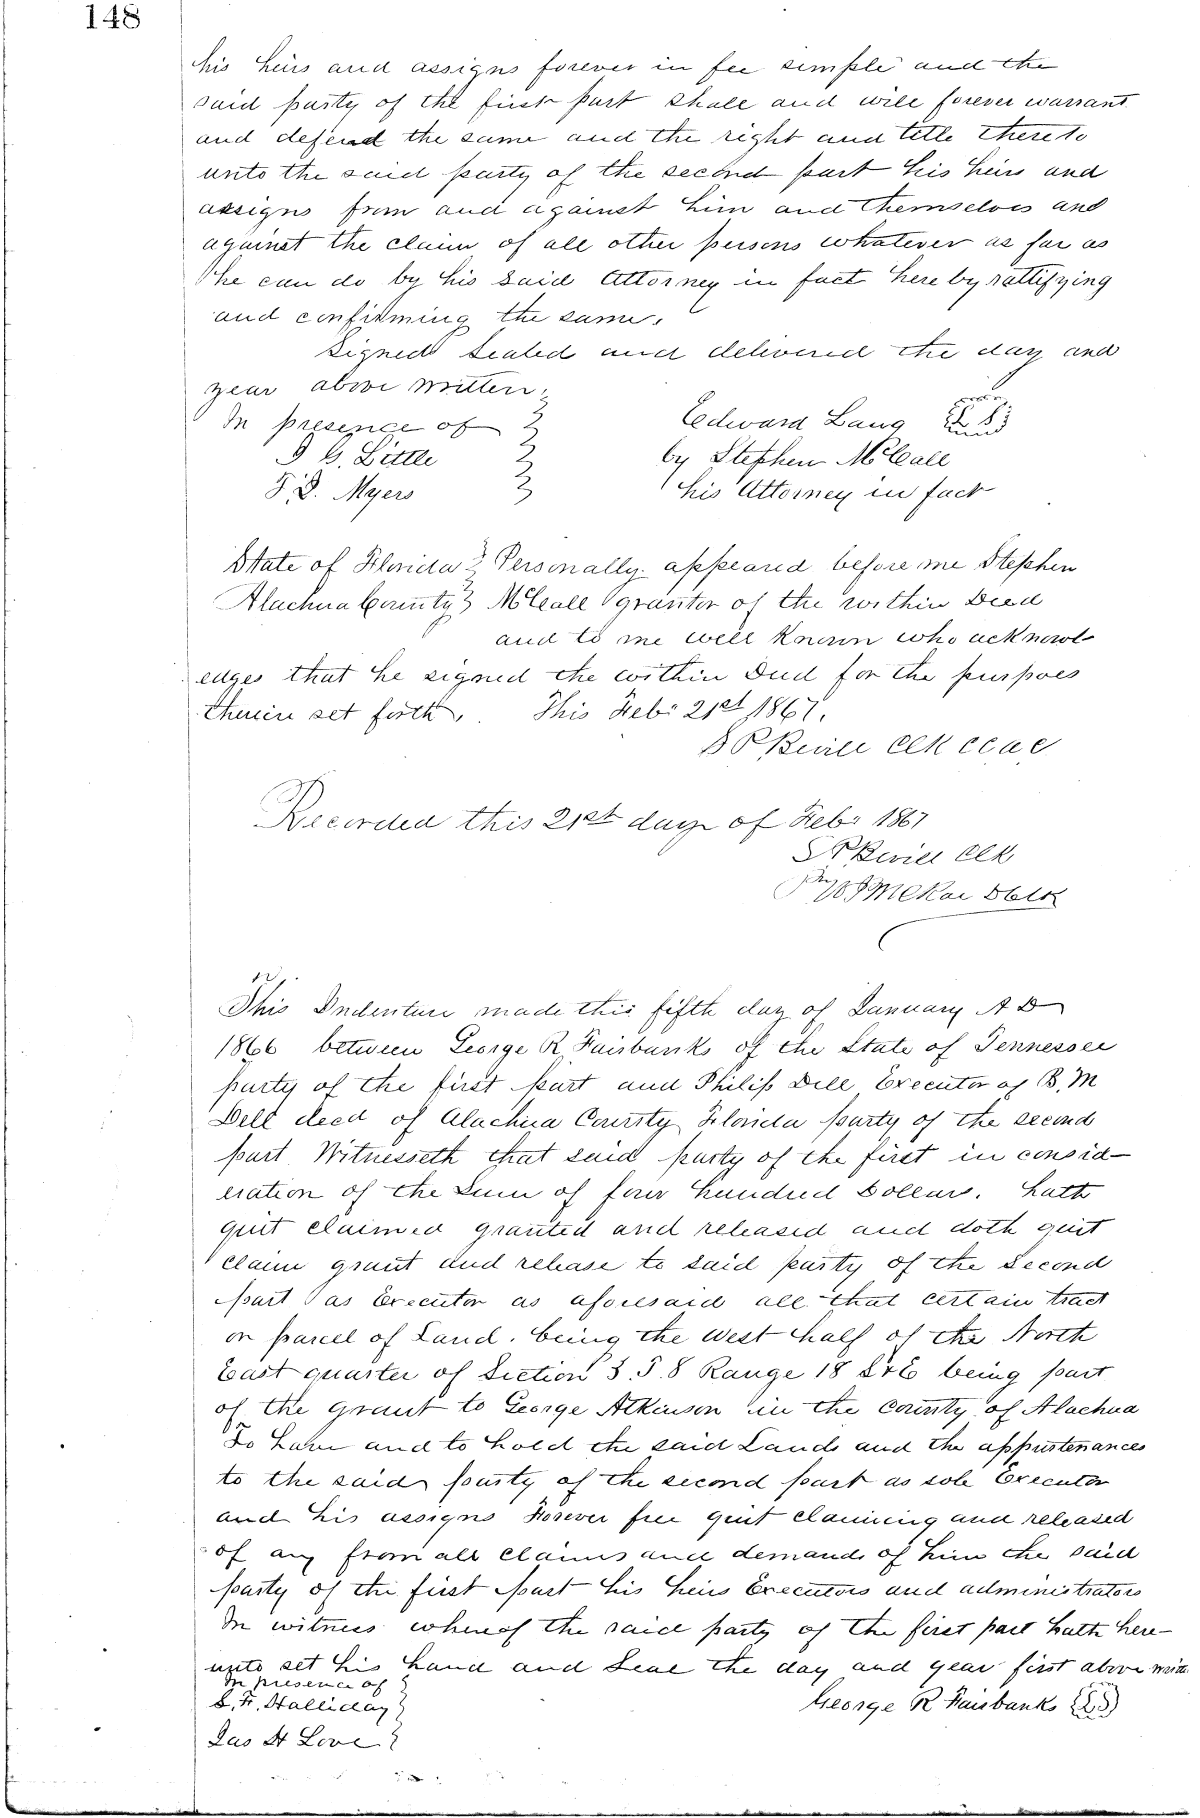 148
his heirs and assigns forever in fee simple and the
said party of the first part shall and will forever warrant
and defend the same and the right and title thereto
unto the said party of the second part his heirs and
assigns from and against him and themselves and
against the claim of all other persons whatever as far as
he can do by his said Attorney in fact hereby rattifying
and confirming the same.
Signed Sealed and delivered the day and
year above written.
In presence of
Edward Lang L S
by Stephen McCall
his Attorney in fact
J G. Little
J. D. Myers
State of Florida } Personally appeared before me Stephen
Alachua County } McCall grantor of the within Deed
and to me well known who acknowl
edges that he signed the within Deed for the purpoes
therein set forth. This Feb: 21st 1867.
S P Bevill Clk CCAC
Recorded this 21st day of Feb: 1867
S P Bevill Clk
Pr McKae D Clk
This Indenture made this fifth day of January A D
1866 between George R Fairbanks of the State of Tennessee
party of the first part and Philip Dell Executor of B. M
Dell decd of Alachua County Florida party of the second
part Witnesseth that said party of the first in consid-
eration of the Sum of four hundred Dollars. hath
quit claimed granted and released and doth quit
claim grant and release to said party of the Second
part as Executor as aforesaid all that certain tract
or parcel of Land. being the west half of the North
East quarter of Section 3. T. 8 Range 18 S & E being part
of the grant to George Atkinson in the county of Alachua
To have and to hold the said Lands and the appurtenances
to the said party of the second part as sole Executor
and his assigns Forever free quit claiming and released
of any from all claims and demands of him the said
party of the first part his heirs Executors and administrators
In witness whereof the said party of the first part hath here-
unto set his hand and Seal the day and year first above writt
In presence of
S. F. Halliday
George R Fairbanks L S
Jas H Love